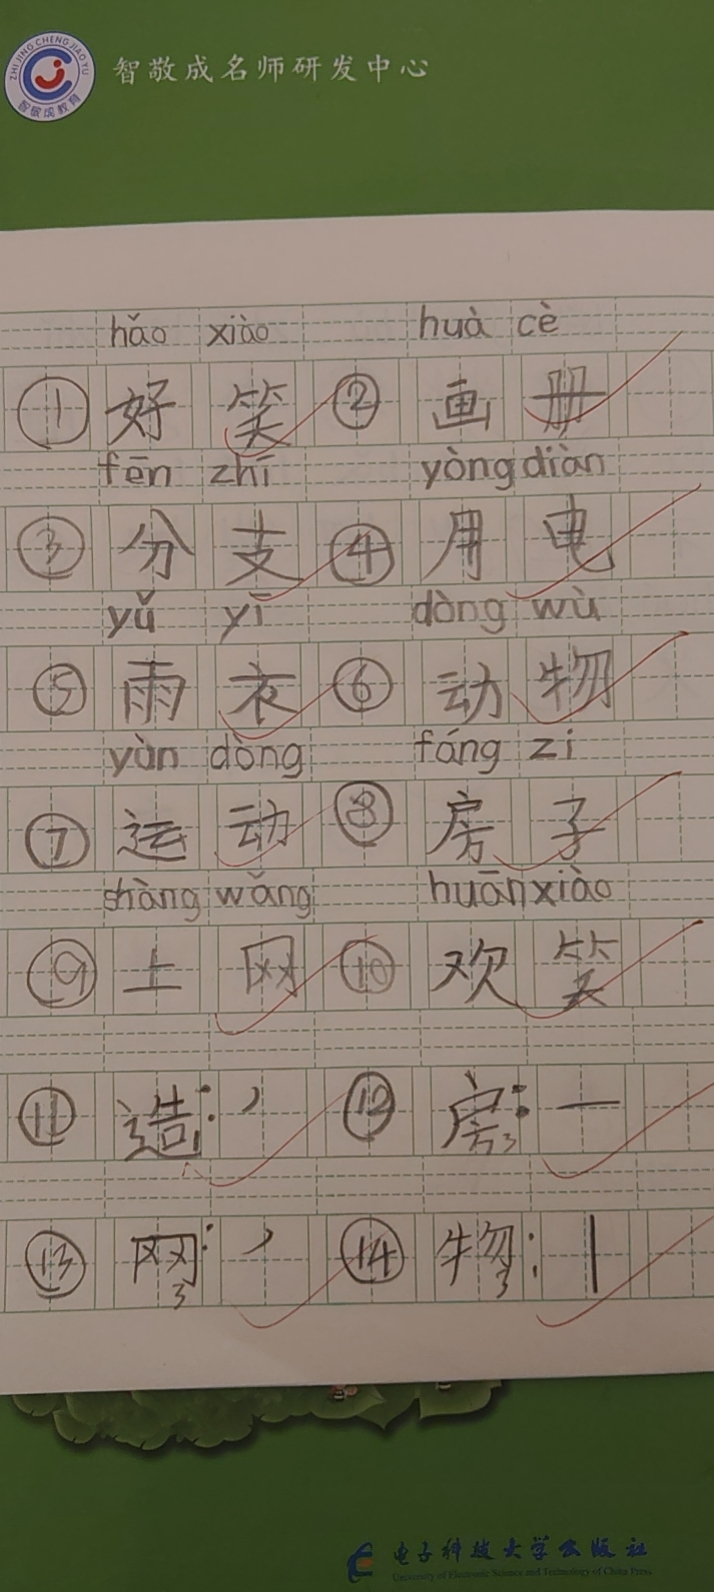 ZHI JING CHENG JIAO YU
智敬成教育
智敬成名师研发中心
hǎo xiào huà cè
① 好笑 ② 画册
fēn zhī yòng diàn
③ 分支 ④ 用电
yǔ yī dòng wù
⑤ 雨衣 ⑥ 动物
yùn dòng fáng zi
⑦ 运动 ⑧ 房子
shàng wǎng huān xiào
⑨ 上网 ⑩ 欢笑
⑪ 造:丿 ⑫ 房3:一
⑬ 网3:丿 ⑭ 物3:丨
电子科技大学出版社
University of Electronic Science and Technology of China Press